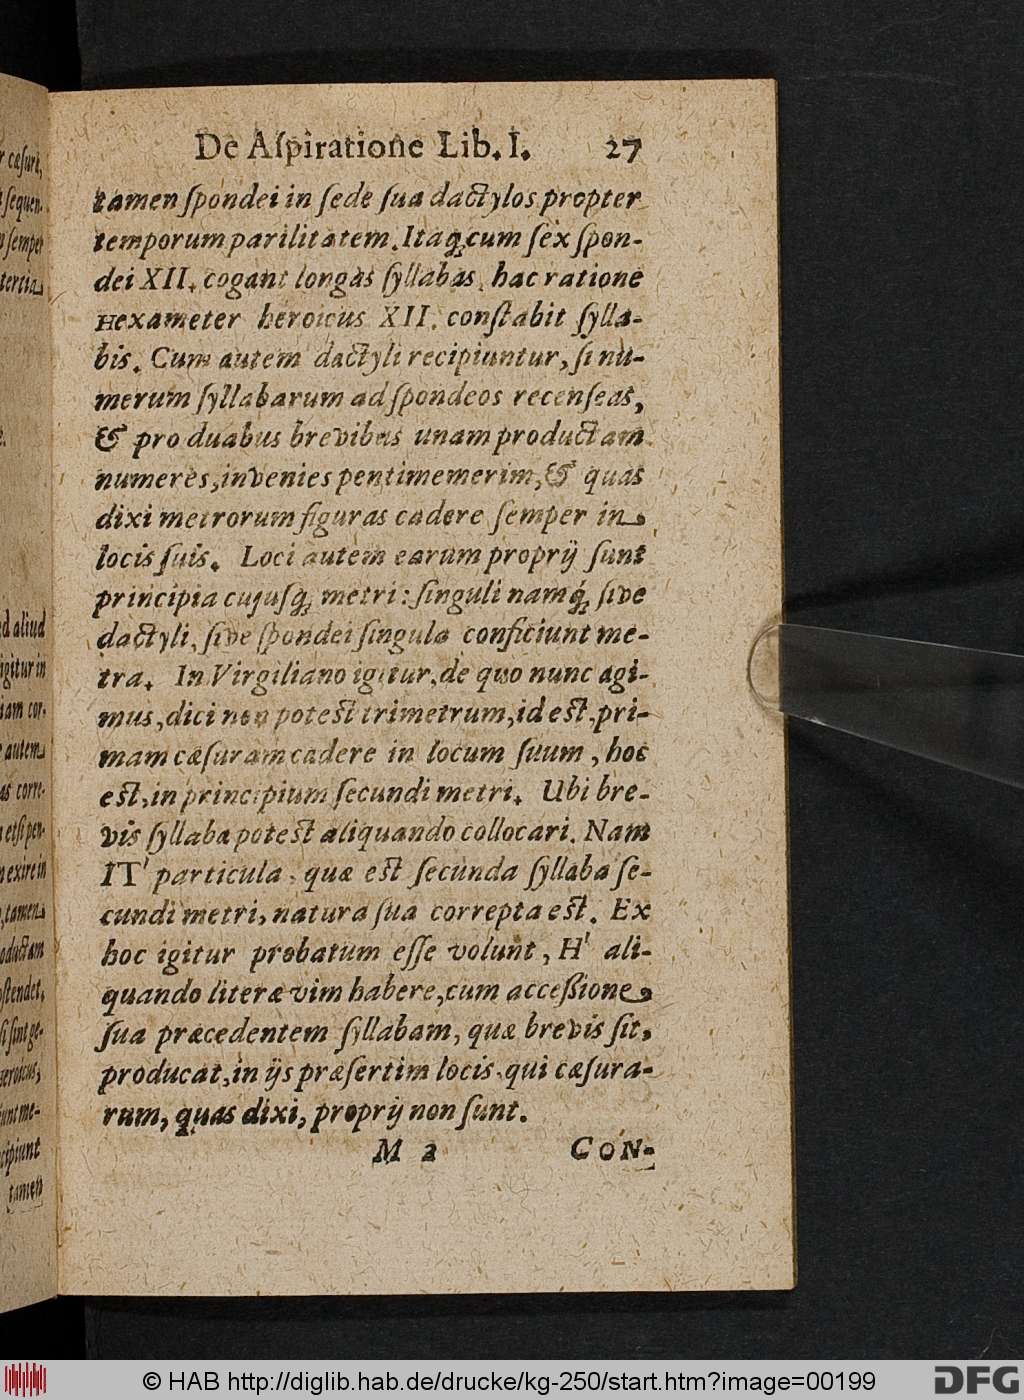 De Aſpiratione Lib. I. 27
tamen ſpondei in ſede ſua dactylos propter
temporum parilitatem. Itaq; cum ſex ſpon-
dei XII. cogant longas ſyllabas, hac ratione
Hexameter heroicus XII. conſtabit ſylla-
bis. Cum autem dactyli recipiuntur, ſi nu-
merum ſyllabarum ad ſpondeos recenſeas,
& pro duabus brevibus unam productam
numeres, invenies pentimemerim, & quas
dixi metrorum figuras cadere ſemper in
locis ſuis. Loci autem earum proprij ſunt
principia cujuſq; metri: ſinguli namq́; ſive
dactyli, ſive ſpondei ſingula conficiunt me-
tra. In Virgiliano igitur, de quo nunc agi-
mus, dici non poteſt trimetrum, id eſt, pri-
mam cæſuram cadere in locum ſuum, hoc
eſt, in principium ſecundi metri. Ubi bre-
vis ſyllaba poteſt aliquando collocari. Nam
IT' particula, quæ eſt ſecunda ſyllaba ſe-
cundi metri, natura ſua correpta eſt. Ex
hoc igitur probatum eſſe volunt, H' ali-
quando literæ vim habere, cum acceßione
ſua præcedentem ſyllabam, quæ brevis ſit,
producat, in ijs præſertim locis, qui cæſura-
rum, quas dixi, proprij non ſunt.
M 2 CON-
r cæſura,
ſequen-
ſemper
tertia
ad aliud
igitur in
iam cor-
autem
as corre-
etſi pen-
exire in
tamen
oductam
oſtendet,
ſi ſint ge-
heroicus,
unt me-
cipiunt
tamen
© HAB http://diglib.hab.de/drucke/kg-250/start.htm?image=00199
DFG